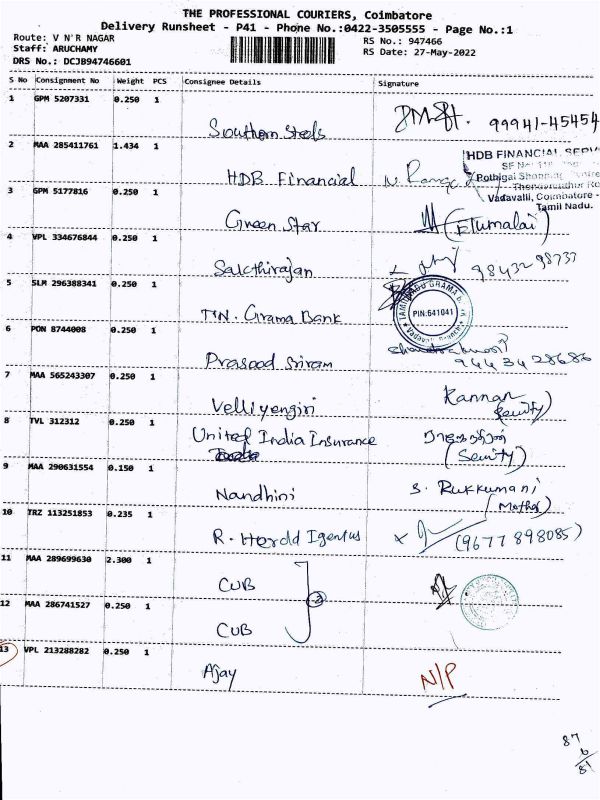 THE PROFESSIONAL COURIERS, Coimbatore
Delivery Runsheet - P41 - Phone No.:0422-3505555 - Page No.:1
Route: V N'R NAGAR
Staff: ARUCHAMY
DRS No.: DCJB94746601
RS No.: 947466
RS Date: 27-May-2022
S No Consignment No Weight PCS Consignee Details Signature
1 GPM 5207331 0.250 1
Southern Steels 99941-45454
2 MAA 285411761 1.434 1
HDB Financial
HDB FINANCIAL SERV
Pothigai Shopping
Vadavalli, Coimbatore -
Tamil Nadu.
3 GPM 5177816 0.250 1
Green Star (Elumalai)
4 VPL 334676844 0.250 1
Sakthirajan 98432 98737
5 SLM 296388341 0.250 1
TN. Grama Bank
PIN:641041
6 PON 8744008 0.250 1
Prasood Sriram 94434 28686
7 MAA 565243307 0.250 1
Velliyengiri Kannan
(Security)
8 TVL 312312 0.250 1
United India Insurance
(Security)
9 MAA 290631554 0.150 1
Nandhini S. Rukkumani
(Mother)
10 TRZ 113251853 0.235 1
R. Herold Igentus (9677 898085)
11 MAA 289699630 2.300 1
CUB
2
12 MAA 286741527 0.250 1
CUB
13 VPL 213288282 0.250 1
Ajay N/P
87
6
81